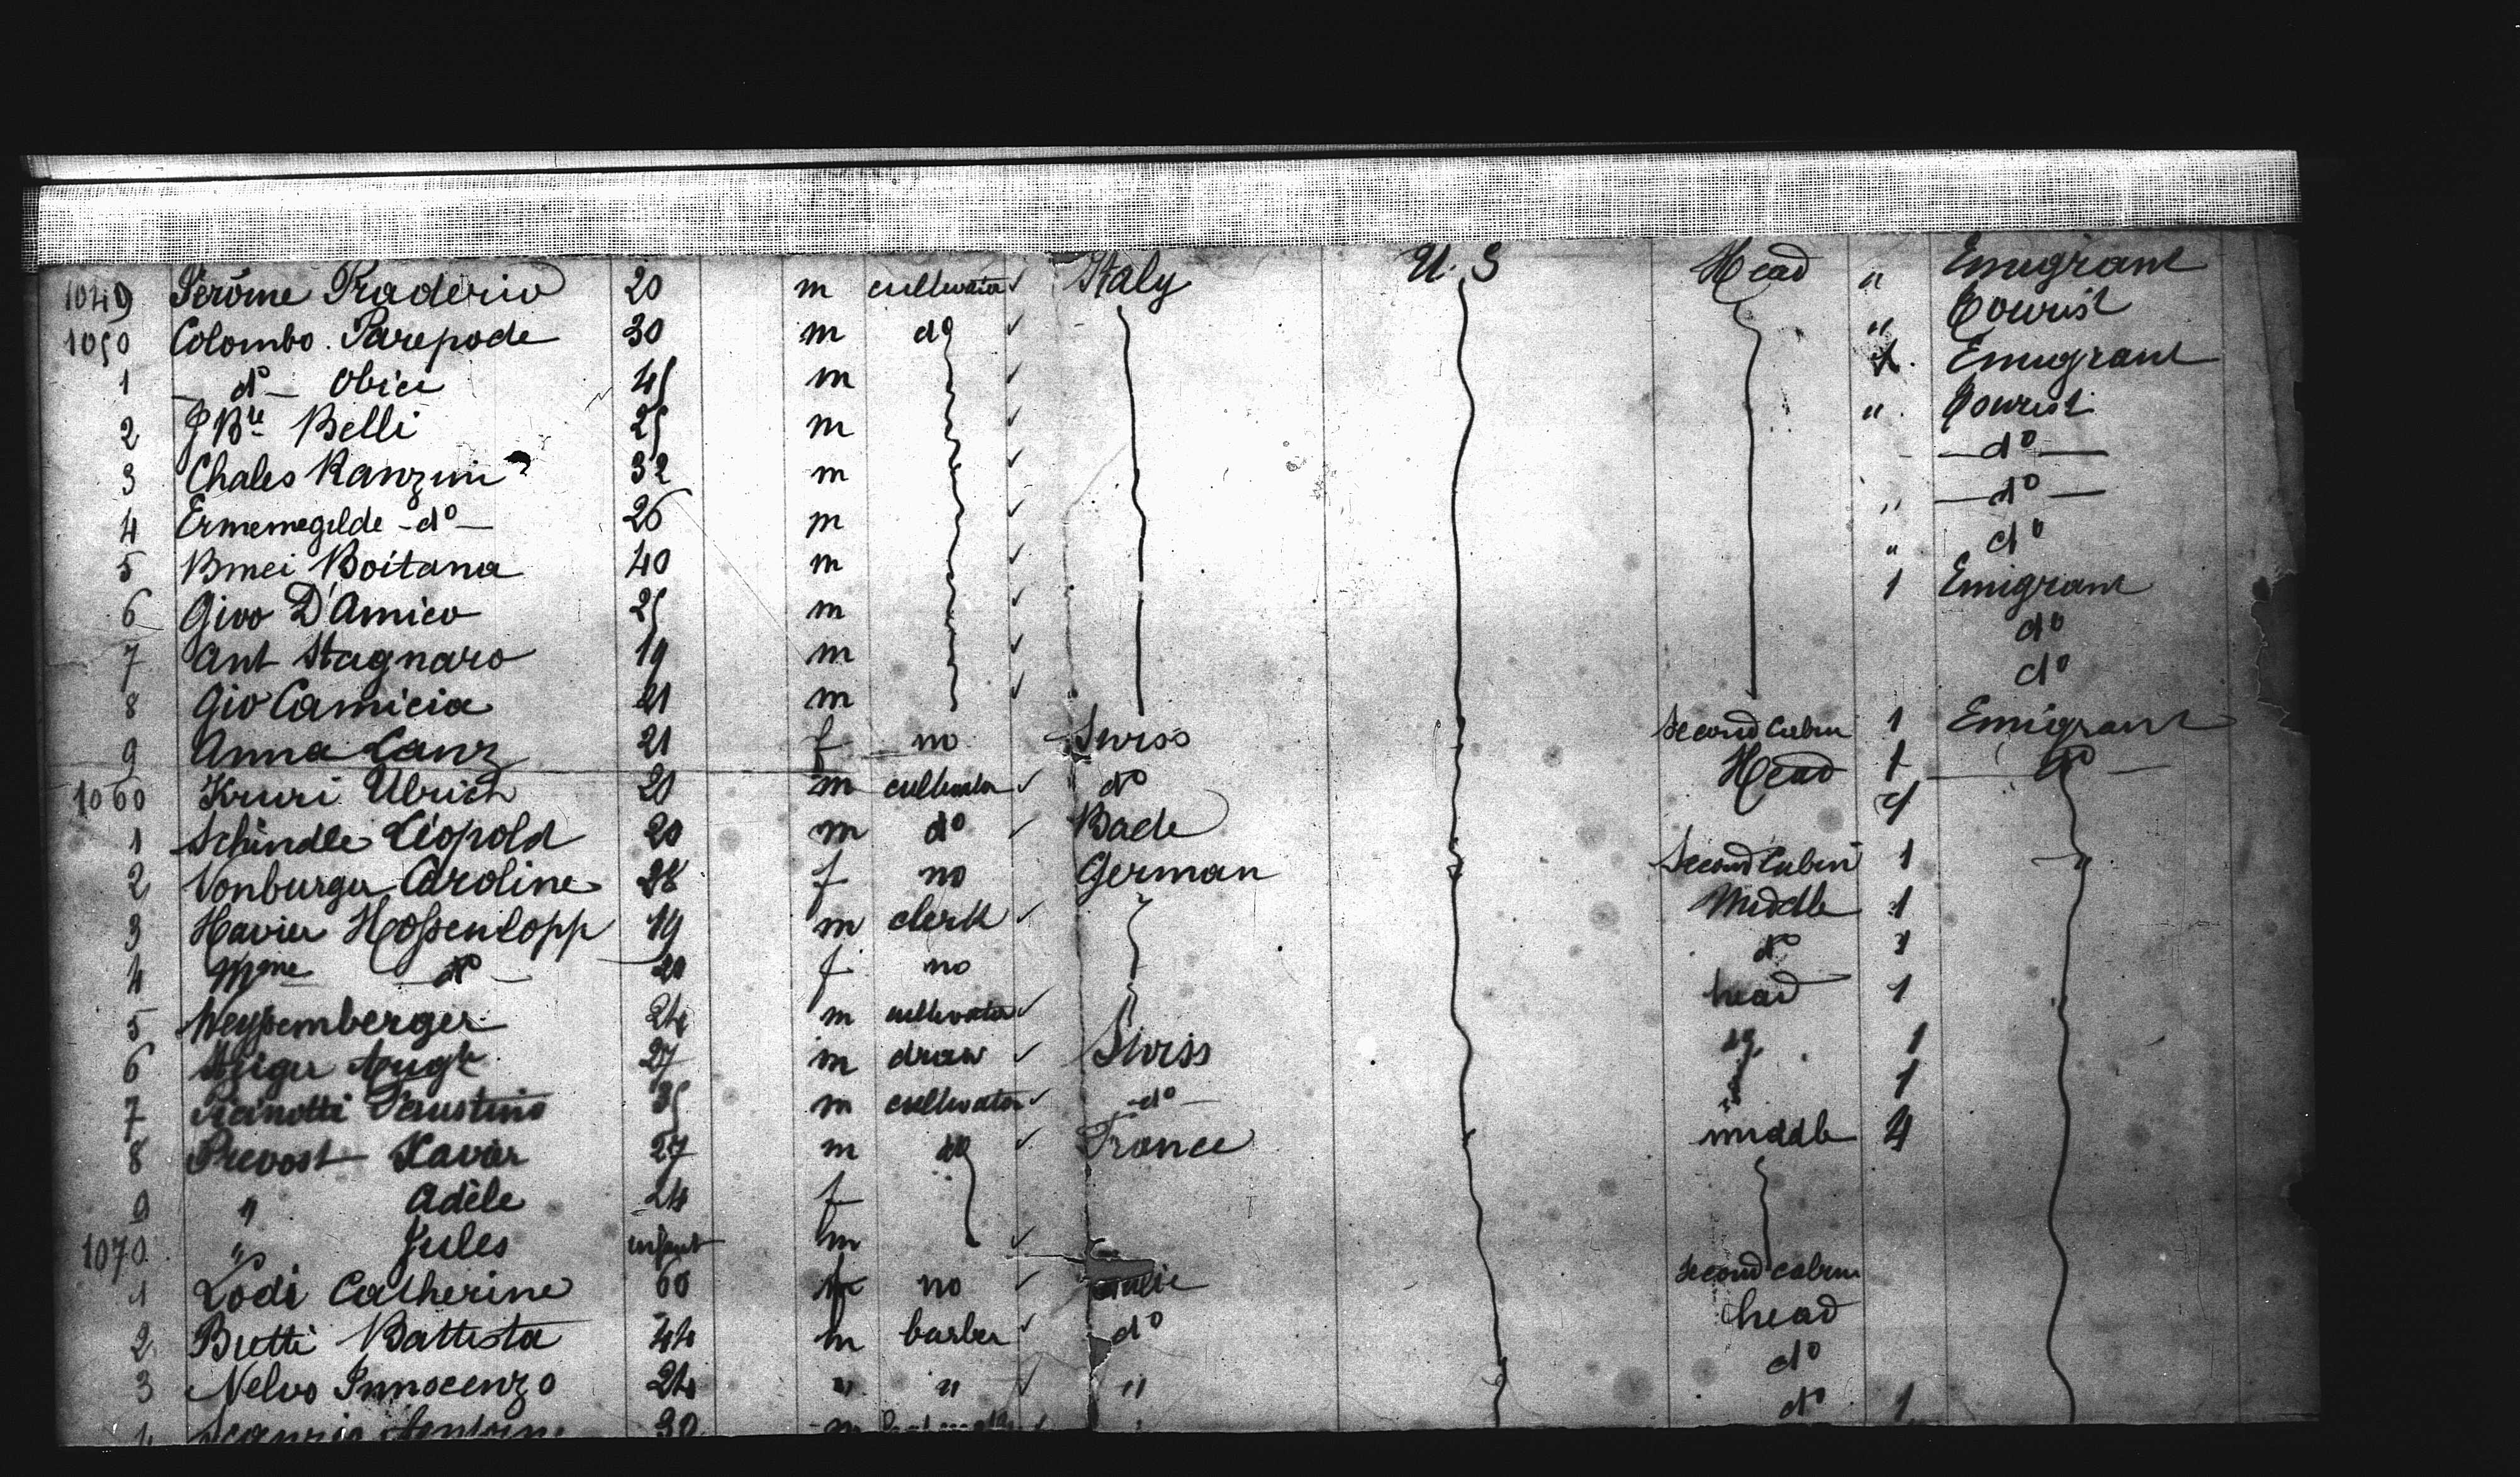 1049 Jerôme Praderio 20 m cultivator ✓ Italy U.S Head " Emigrant
1050 Colombo Parepode 30 m do ✓ " Tourist
1 do Obici 45 m ✓ 1 Emigrant
2 J Bte Belli 25 m ✓ " Tourist
3 Chales Ranzini 32 m ✓ do
4 Ermemegilde do 26 m ✓ " do
5 Bmei Boitana 40 m ✓ " do
6 Givo D'Amico 25 m ✓ 1 Emigrant
7 Ant Stagnaro 19 m ✓ do
8 Gio Camicia 21 m ✓ do
9 Anna Lanz 21 f no Swiss Second Cabin 1 Emigrant
1060 Kruri Ulrich 20 m cultivator ✓ do Head 1 do
1 Schindle Léopold 20 m do ✓ Bade
2 Vonburger Caroline 28 f no German Second Cabin 1
3 Havier Hossenlopp 19 m clerk ✓ Middle 1
4 Mme do 20 f no do 1
5 Weyssemberger 24 m cultivator ✓ head 1
6 27 m draw ✓ Swiss 1
7 Faustino 35 m cultivator ✓ do 1
8 Prevost Xavier 27 m do ✓ France middle 4
9 " Adèle 24 f
1070 " Jules infant m ✓
1 Lodi Catherine 60 f no ✓ second cabin
2 Butti Battista 44 m barber ✓ do head
3 Nelvo Innocenzo 24 " " ✓ " do
30 m do 1